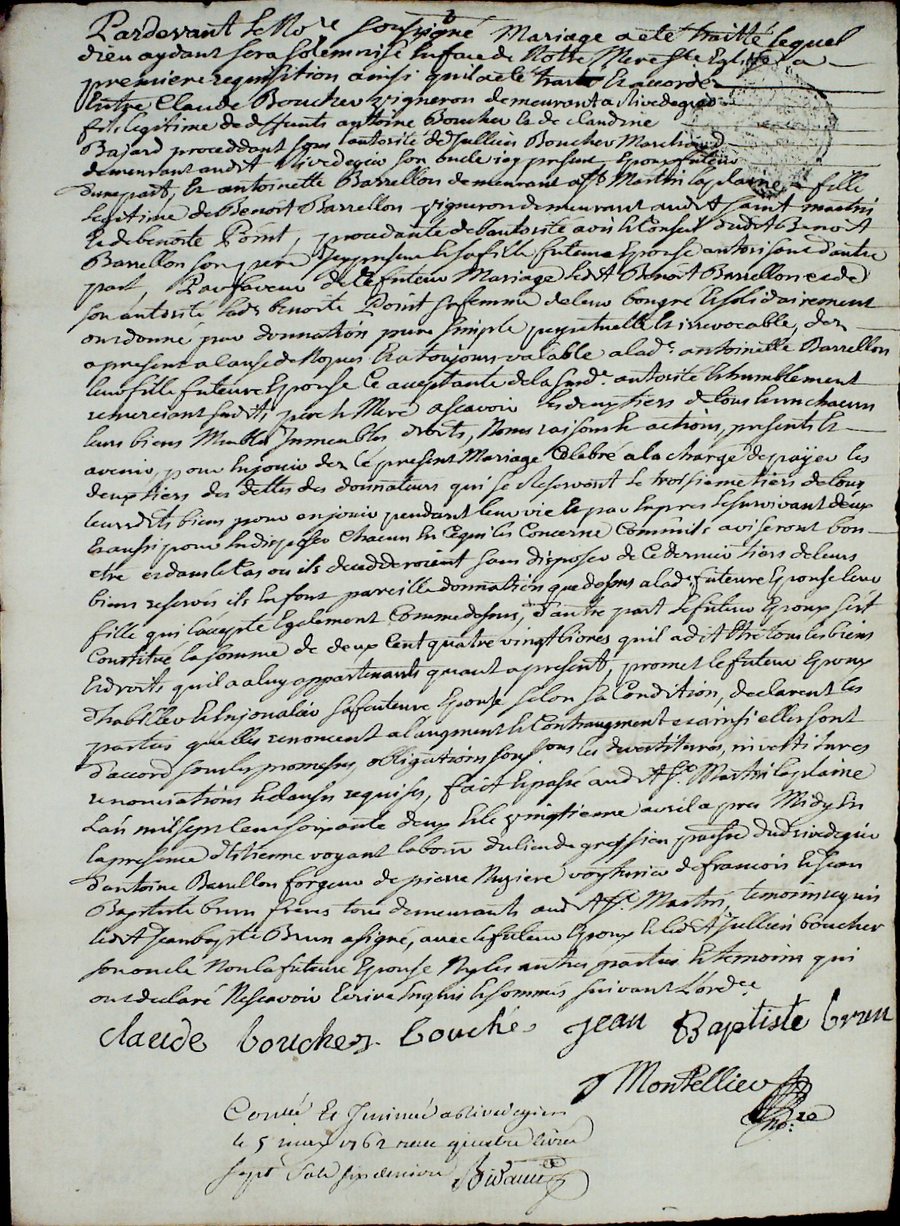 Pardevant le No.re soussigné Mariage a eté traitté lequel
dieu aydant sera solemnisé en face de Notre Mere Ste Eglise a
premiere requisition ainsi quil a eté traité Et accordé
Entre Claude Boucher vigneron demeurant a Rivedegier
fils legitime de deffunts antoine Boucher Et de clandine
Bajard proceddant sous l'autorité de Jullien Boucher Marchand
demeurant audit Rivedegier son oncle icy present Epoux futeur
dune part, Et antoinette Barrellon demeurant a St Martin laplaine fille
legitime de Benoit Barrellon vigneron demeurant audit saint martin
Et de benoite Point, procedante de l'autorité avis Et Conseil dudit Benoit
Barrellon son pere icy present Et sa fille futeure Epouse autorisant d'autre
part, En faveur de ce futeur Mariage ledit Benoit Barrellon Et de
son autorité lad. benoite Point sa femme de leur bon gré Et solidairement
ont donné par donnation pure simple perpetuelle Et irrevocable, des
a present a cause de Nopces Et a toujours valable a lad.e antoinette Barrellon
leur fille futeure Epouse Ce acceptante de la susd.e autorité Et humblement
remerciant sesdits pere Et Mere ascavoir les deux tiers de tous Et un chacun
leurs biens Meubles Immeubles droits, Noms raisons Et actions, presents Et
avenir, pour En jouir dez le present Mariage Celebré a la charge de payer les
deux tiers des dettes des donnateurs qui se Reservent le troisieme tiers de tous
leursdits biens pour en jouir pendant leur vie Et par Empres le survivant d'eux
Et aussi pour En disposer chacun En Ce qui les Concerne Comme ils aviseront bon
etre et dans le Cas ou ils deceddroient sans disposer de Ce dernier tiers de leurs
biens reservés ils En font pareille donnation que dessus a lad. futeure Epouse leur
fille qui l'accepte Egalement Comme dessus, d'autre part le futeur Epoux s'est
Constitué la somme de deux Cent quatre vingt livres quil a dit Etre tous les biens
Et droits quil a a luy appartenants quant a present, promet le futeur Epoux
d'habiller Et Enjoualier sa futeure Epouse selon sa Condition, declarent les
parties quelles renoncent a l'augment Et Contraugment et ainsi elles sont
d'accord sous les promesses, obligations soumissions les devestitures, investitures
renonciations Et clauses requises, fait Et passé audit St. Martin laplaine
L'an mil sept Cent soixante deux Et le vingtieme avril apres Midy En
la presence d'Etienne voyant labour. du lieu de gression parsse dud Rivedegier
d'antoine Barrellon forgeur de pierre Ruziere voyturier de francois Et Jean
Baptiste brun freres tous demeurants audit St. Martin, temoins requis
ledit Jean bapste Brun a signé, avec le futeur Epoux Et ledit Jullien boucher
son oncle Non la futeure Epouse Ny les autres parties Et temoins qui
ont declaré Ne scavoir Ecrire Enquis Et sommés suivant L'ord.ce
claude bouches. bouché. jean Baptiste brun
Montellier
no.re
Conté Et Insinué a Rivedegier
le 5 may 1762 receu quatre livres
sept sols six deniers